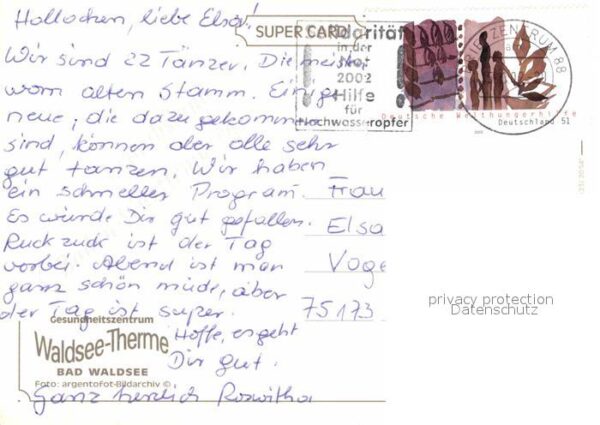 Hallochen, liebe Elsa!
SUPER CARD
Wir sind 22 Tänzer. Die meisten
vom alten Stamm. Einige
neue; die dazugekommen
sind, können aber alle sehr
gut tanzen. Wir haben
ein schnelles Program.
Es würde Dir gut gefallen.
Ruckzuck ist der Tag
vorbei. Abend ist man
ganz schön müde, aber
der Tag ist super.
Hoffe, es geht
Dir gut.
Ganz herzlich Roswitha
Gesundheitszentrum
Waldsee-Therme
BAD WALDSEE
Foto: argentofot-Bildarchiv ©
Solidarität
in der
Not
2002
Hilfe
für
Hochwasseropfer
BRIEFZENTRUM 88
Deutsche Welthungerhilfe
Deutschland 51
Frau
Elsa
Voge
75173
privacy protection
Datenschutz